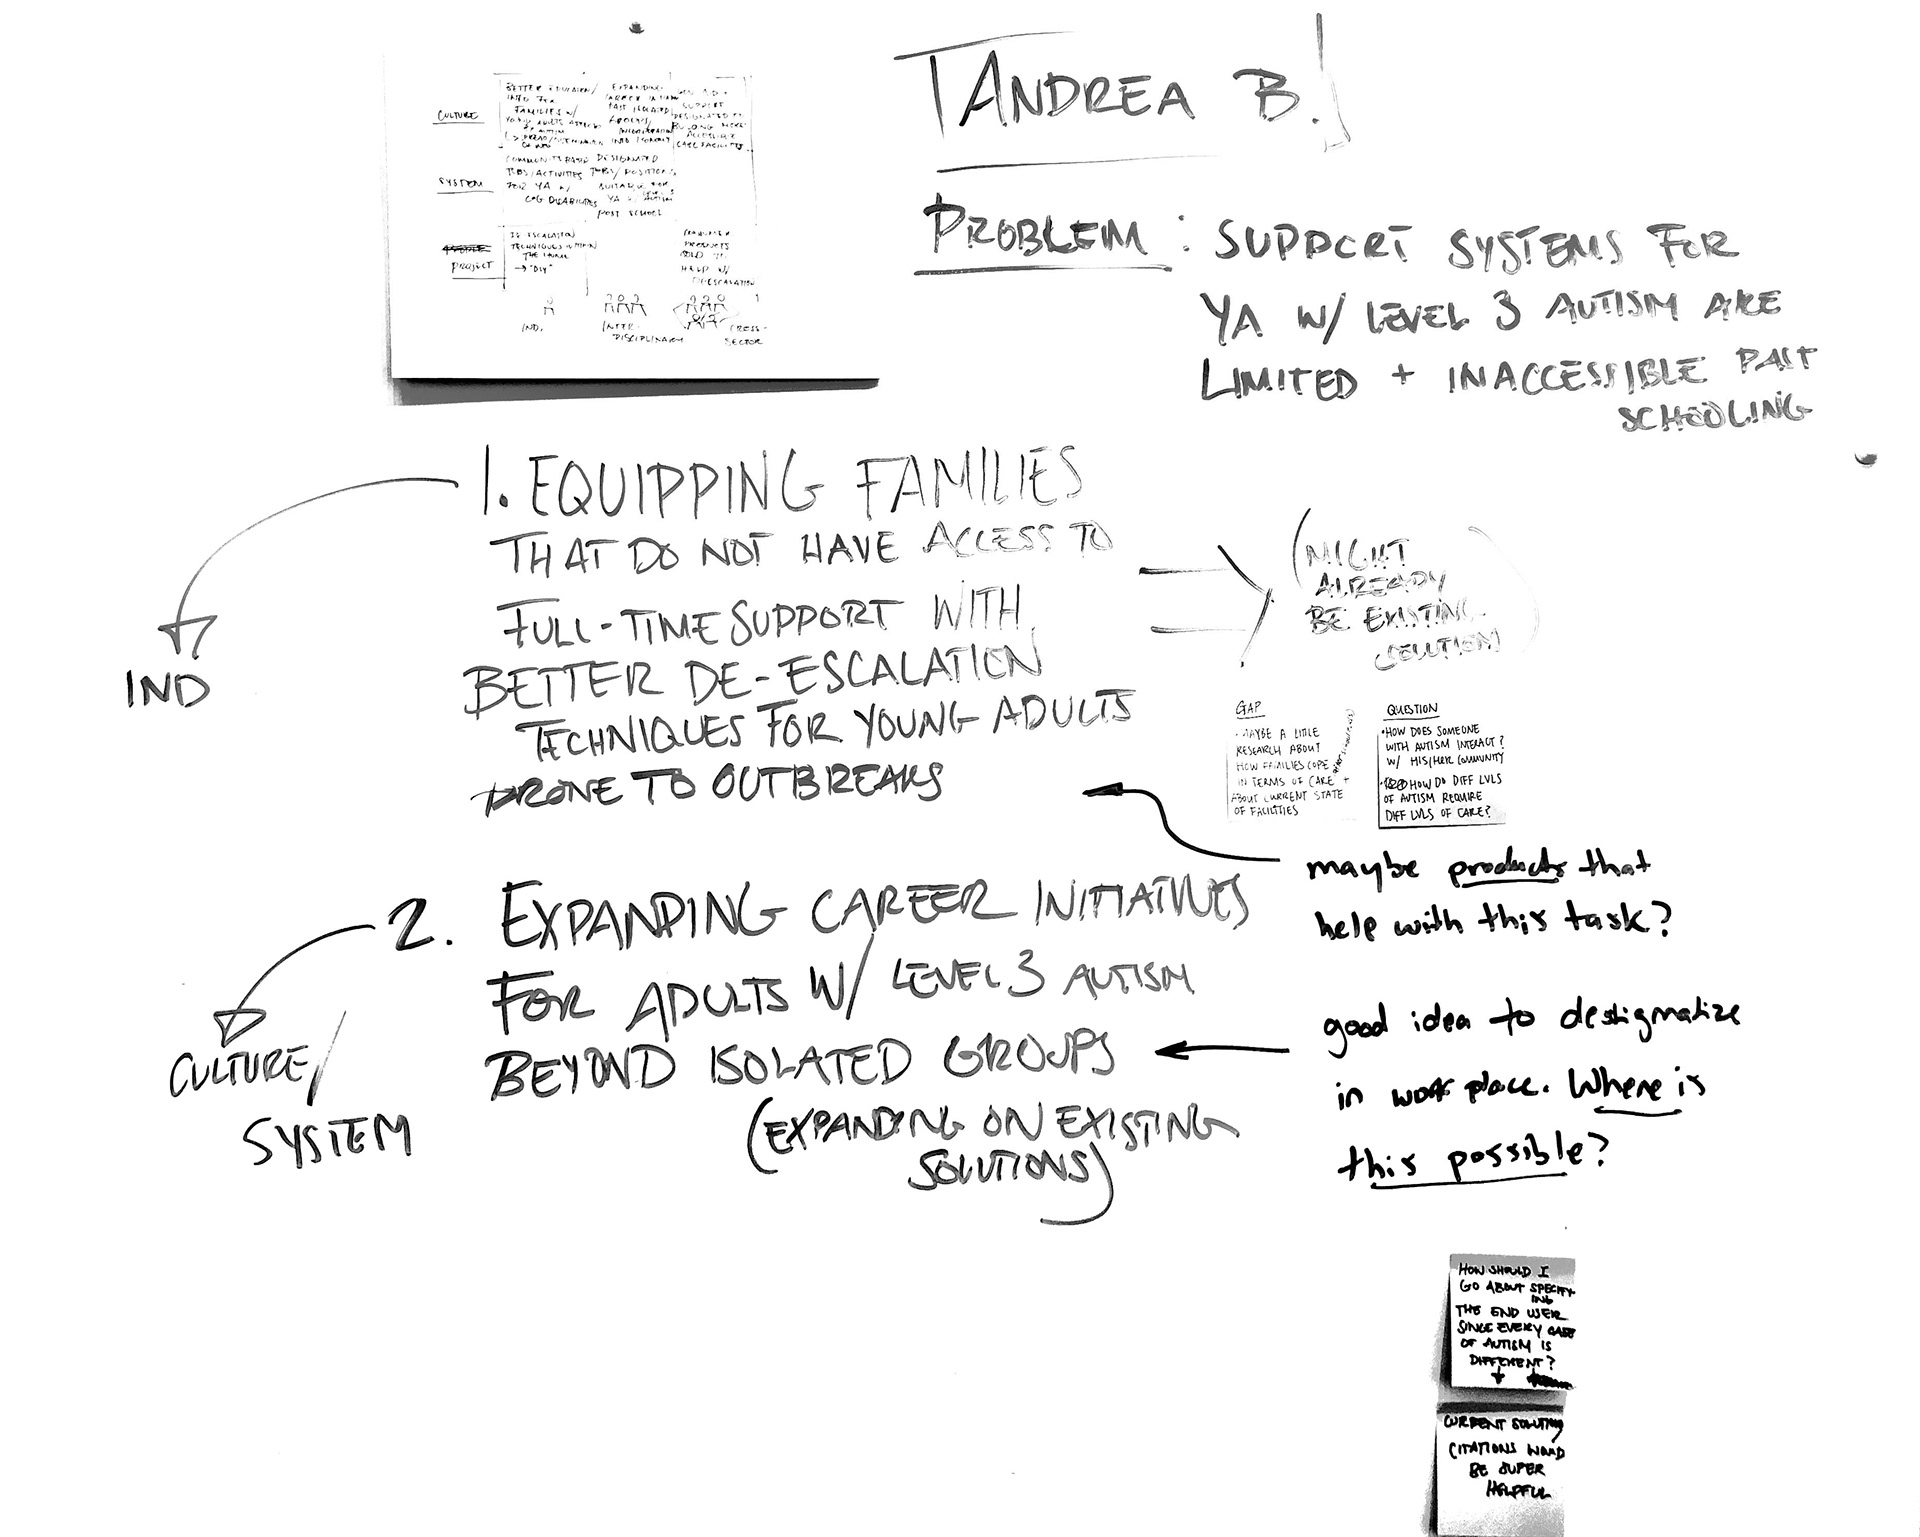 ANDREA B.
PROBLEM: SUPPORT SYSTEMS FOR
YA W/ LEVEL 3 AUTISM ARE
LIMITED + INACCESSIBLE PAST
SCHOOLING
CULTURE
BETTER EDUCATION/
INFO FOR
FAMILIES W/
YOUNG ADULTS AFFECTED
BY AUTISM
EXPANDING
CAREER
PAST ISOLATED
GROUPS/
INTO
SUPPORT
DESIGNATED TO
BUILDING MORE
ACCESSIBLE
CARE FACILITIES
SYSTEM
COMMUNITY BASED
JOBS/ACTIVITIES
FOR YA W/
COG DISABILITIES
DESIGNATED
JOBS/POSITIONS
SUITABLE FOR
YA W/ LEVEL 3 AUTISM
POST SCHOOL
PROJECT
DE ESCALATION
TECHNIQUES WITHIN
THE HOME
→ "DIY"
CONSUMER
PRODUCTS
SOLD TO
HELP W/
DE-ESCALATION
IND.
INTER-
DISCIPLINARY
CROSS-
SECTOR
1. EQUIPPING FAMILIES
THAT DO NOT HAVE ACCESS TO
FULL-TIME SUPPORT WITH
BETTER DE-ESCALATION
TECHNIQUES FOR YOUNG ADULTS
PRONE TO OUTBREAKS
IND
(MIGHT
ALREADY
BE EXISTING
SOLUTION)
GAP
• MAYBE A LITTLE
RESEARCH ABOUT
HOW FAMILIES COPE
IN TERMS OF CARE +
ABOUT CURRENT STATE
OF FACILITIES
QUESTION
• HOW DOES SOMEONE
WITH AUTISM INTERACT?
W/ HIS/HER COMMUNITY
• HOW DO DIFF LVLS
OF AUTISM REQUIRE
DIFF LVLS OF CARE?
maybe products that
help with this task?
2. EXPANDING CAREER INITIATIVES
FOR ADULTS W/ LEVEL 3 AUTISM
BEYOND ISOLATED GROUPS
(EXPANDING ON EXISTING
SOLUTIONS)
CULTURE/
SYSTEM
good idea to destigmatize
in work place. Where is
this possible?
HOW SHOULD I
GO ABOUT SPECIFY
ING
THE END USER
SINCE EVERY CASE
OF AUTISM IS
DIFFERENT?
+
CURRENT SOLUTION
CITATIONS WOULD
BE SUPER
HELPFUL